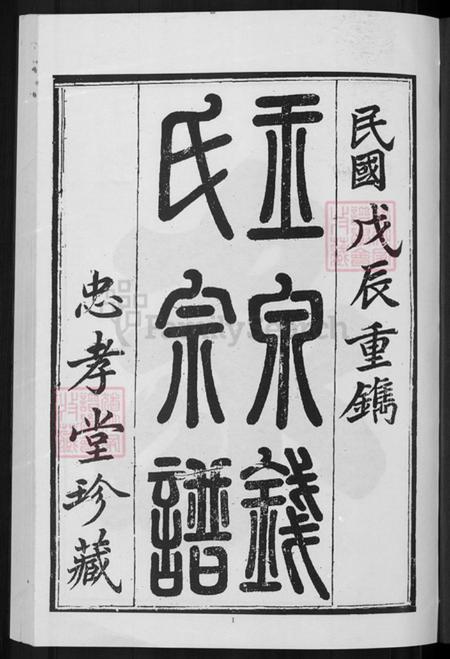 民國戊辰重鐫
玉泉錢
氏宗譜
忠孝堂珍藏
FamilySearch
1